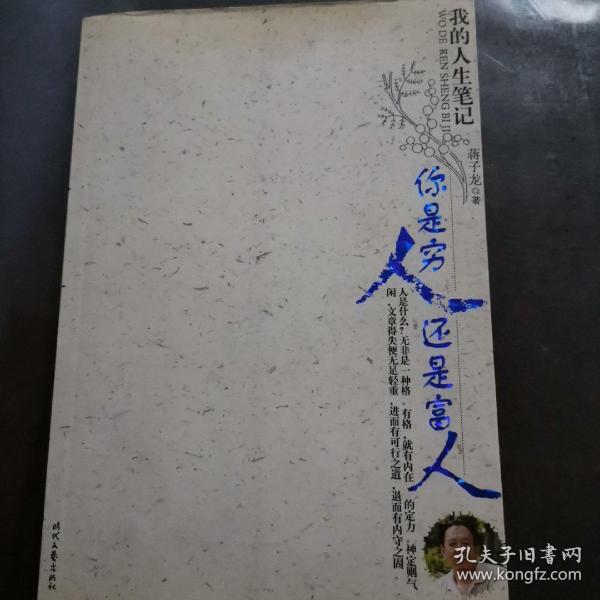 我的人生笔记
WO DE REN SHENG BI JI
蒋子龙◎著
你是穷人
还是富人
人是什么？无非是一种格。有格，就有内在的定力。神定则气
闲，文章得失便无足轻重，进而有可行之道，退而有内守之固。
时代文艺出版社
孔夫子旧书网
www.kongfz.com